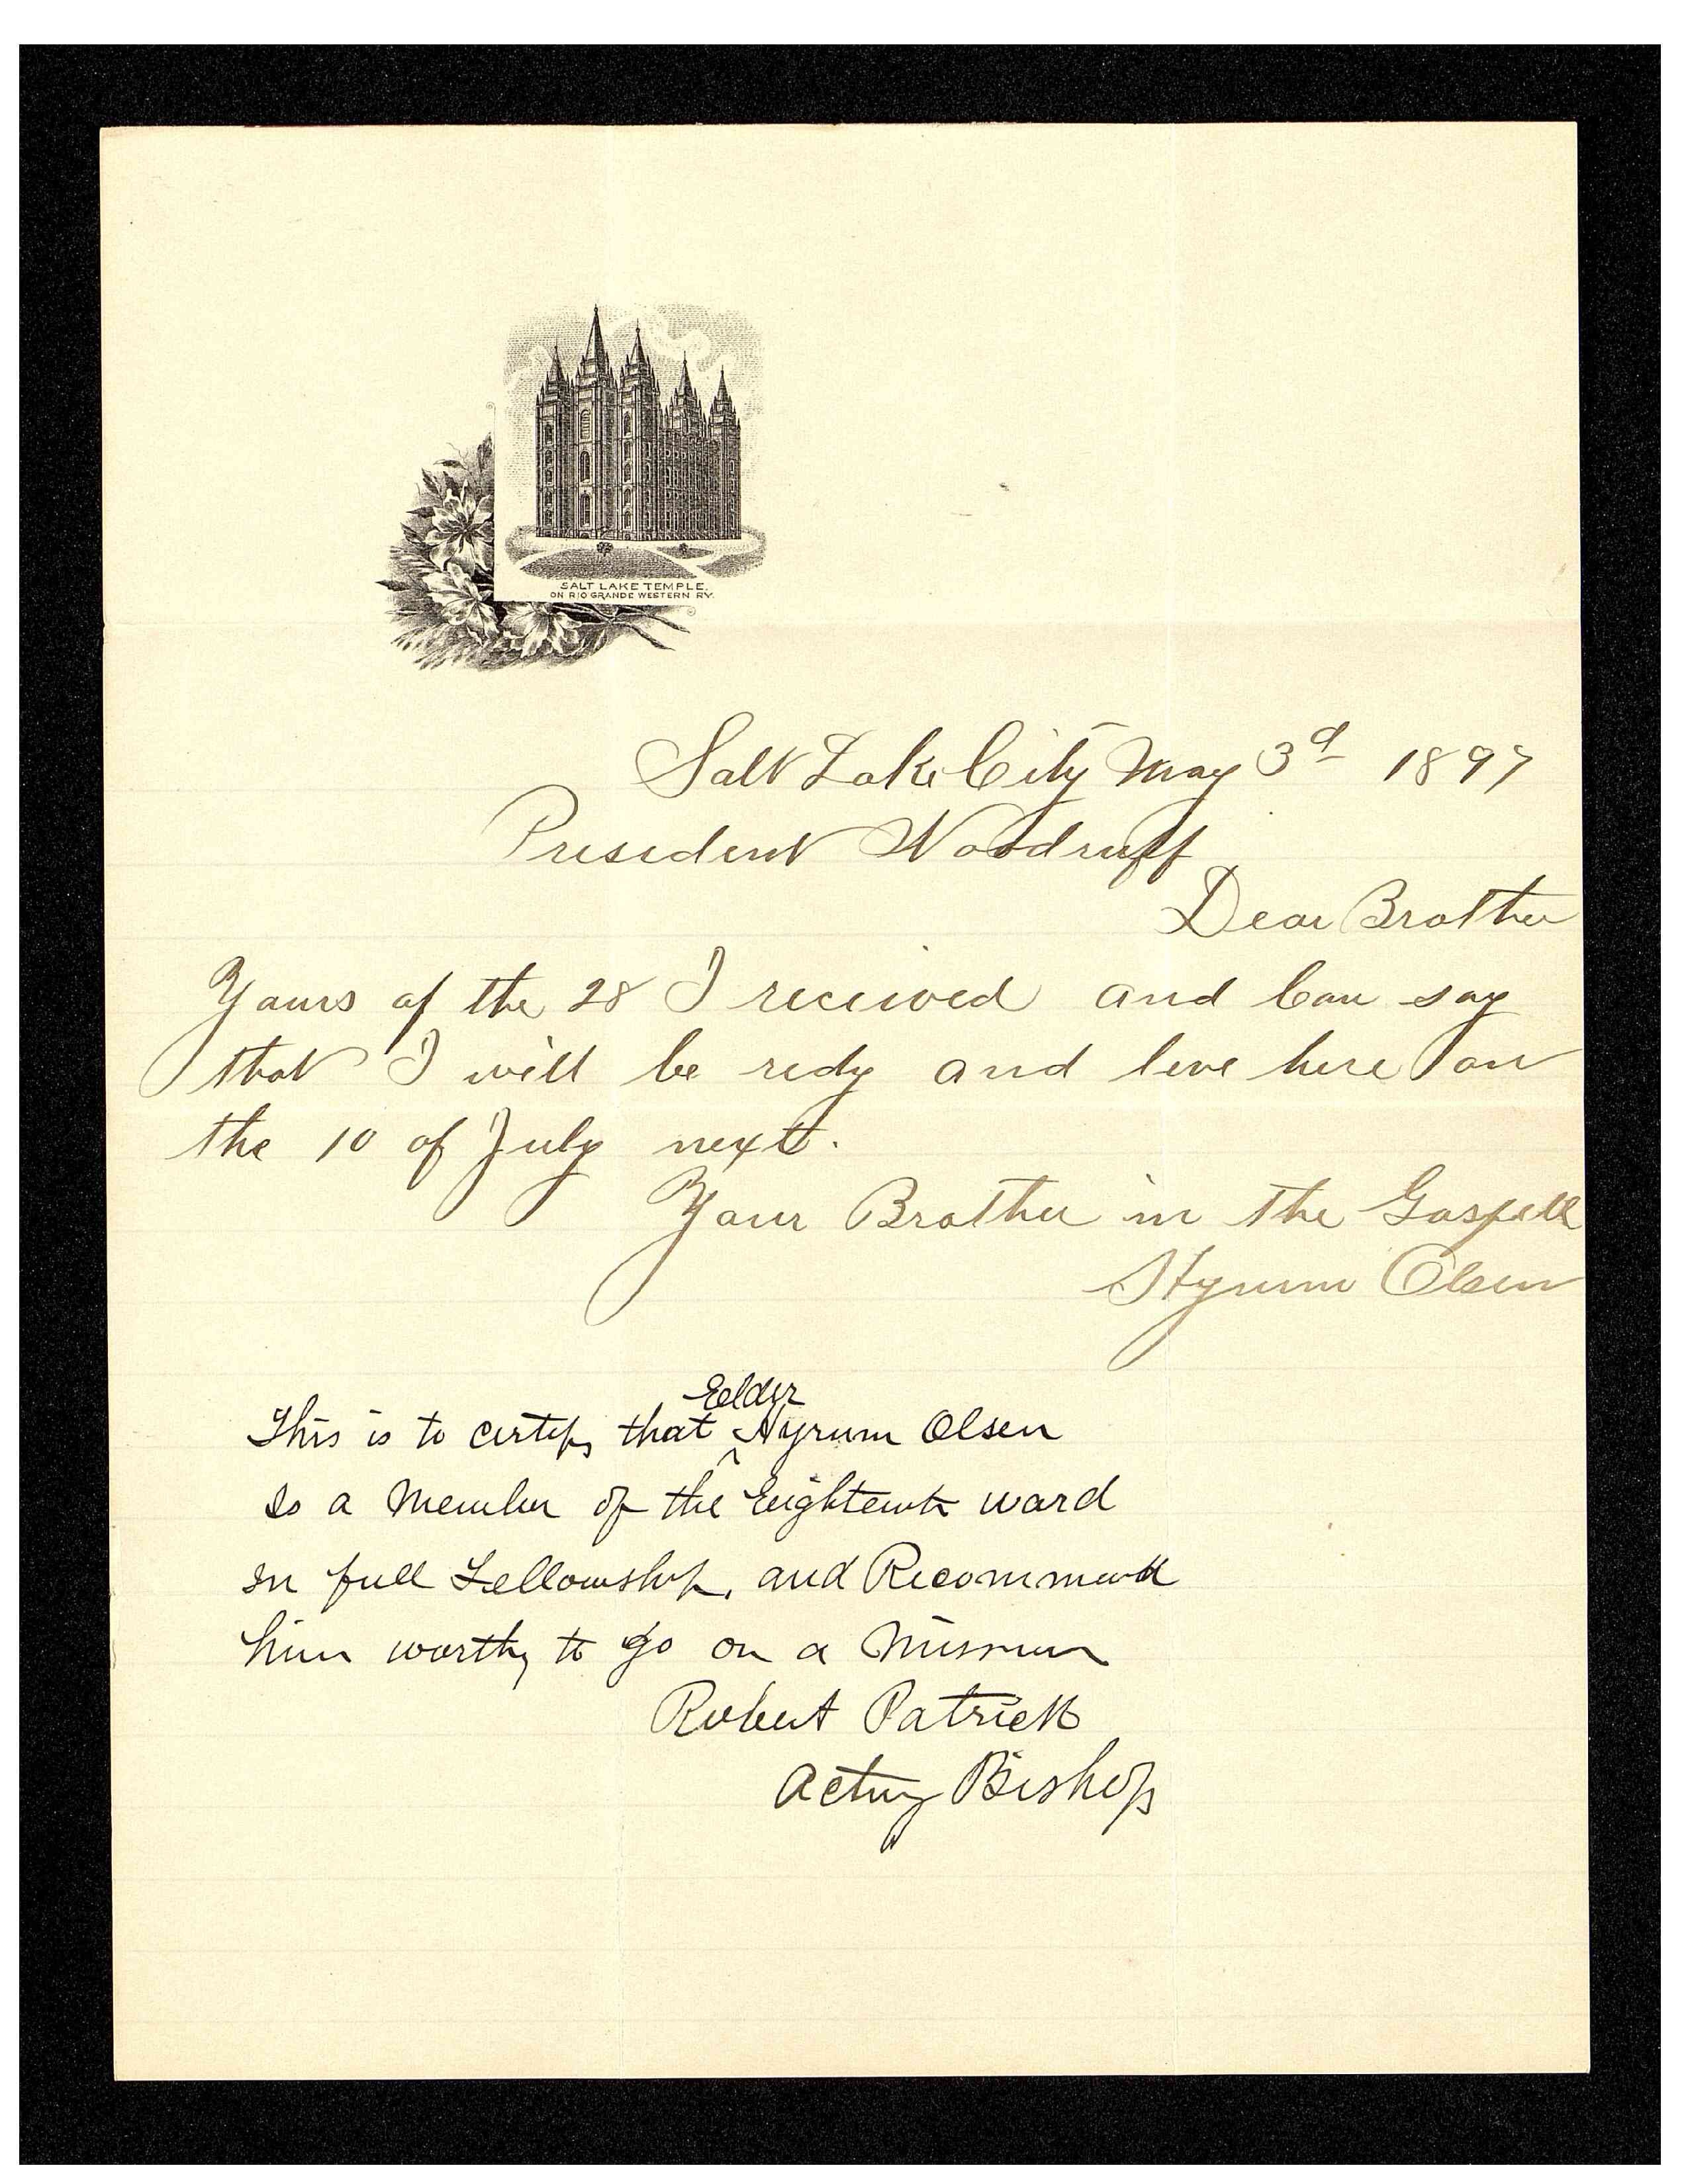 SALT LAKE TEMPLE,
ON RIO GRANDE WESTERN RY.
Salt Lake City May 3d 1897
President Woodruff
Dear Brother
Yours of the 28 I received and Can say
that I will be redy and leve here on
the 10 of July next.
Your Brother in the Gospell
Hyrum Olsen
Eelder
This is to certify that ^ Hyrum Olsen
is a Member of the Eighteenth ward
in full Fellowship, and Recommend
him worthy to go on a Mission
Robert Patrick
Acting Bishop